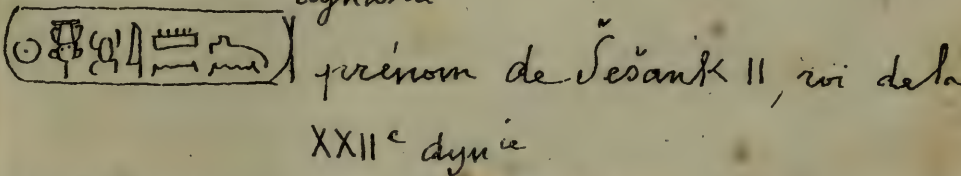 prénom de Šešank II, roi de la
XXIIe dynie